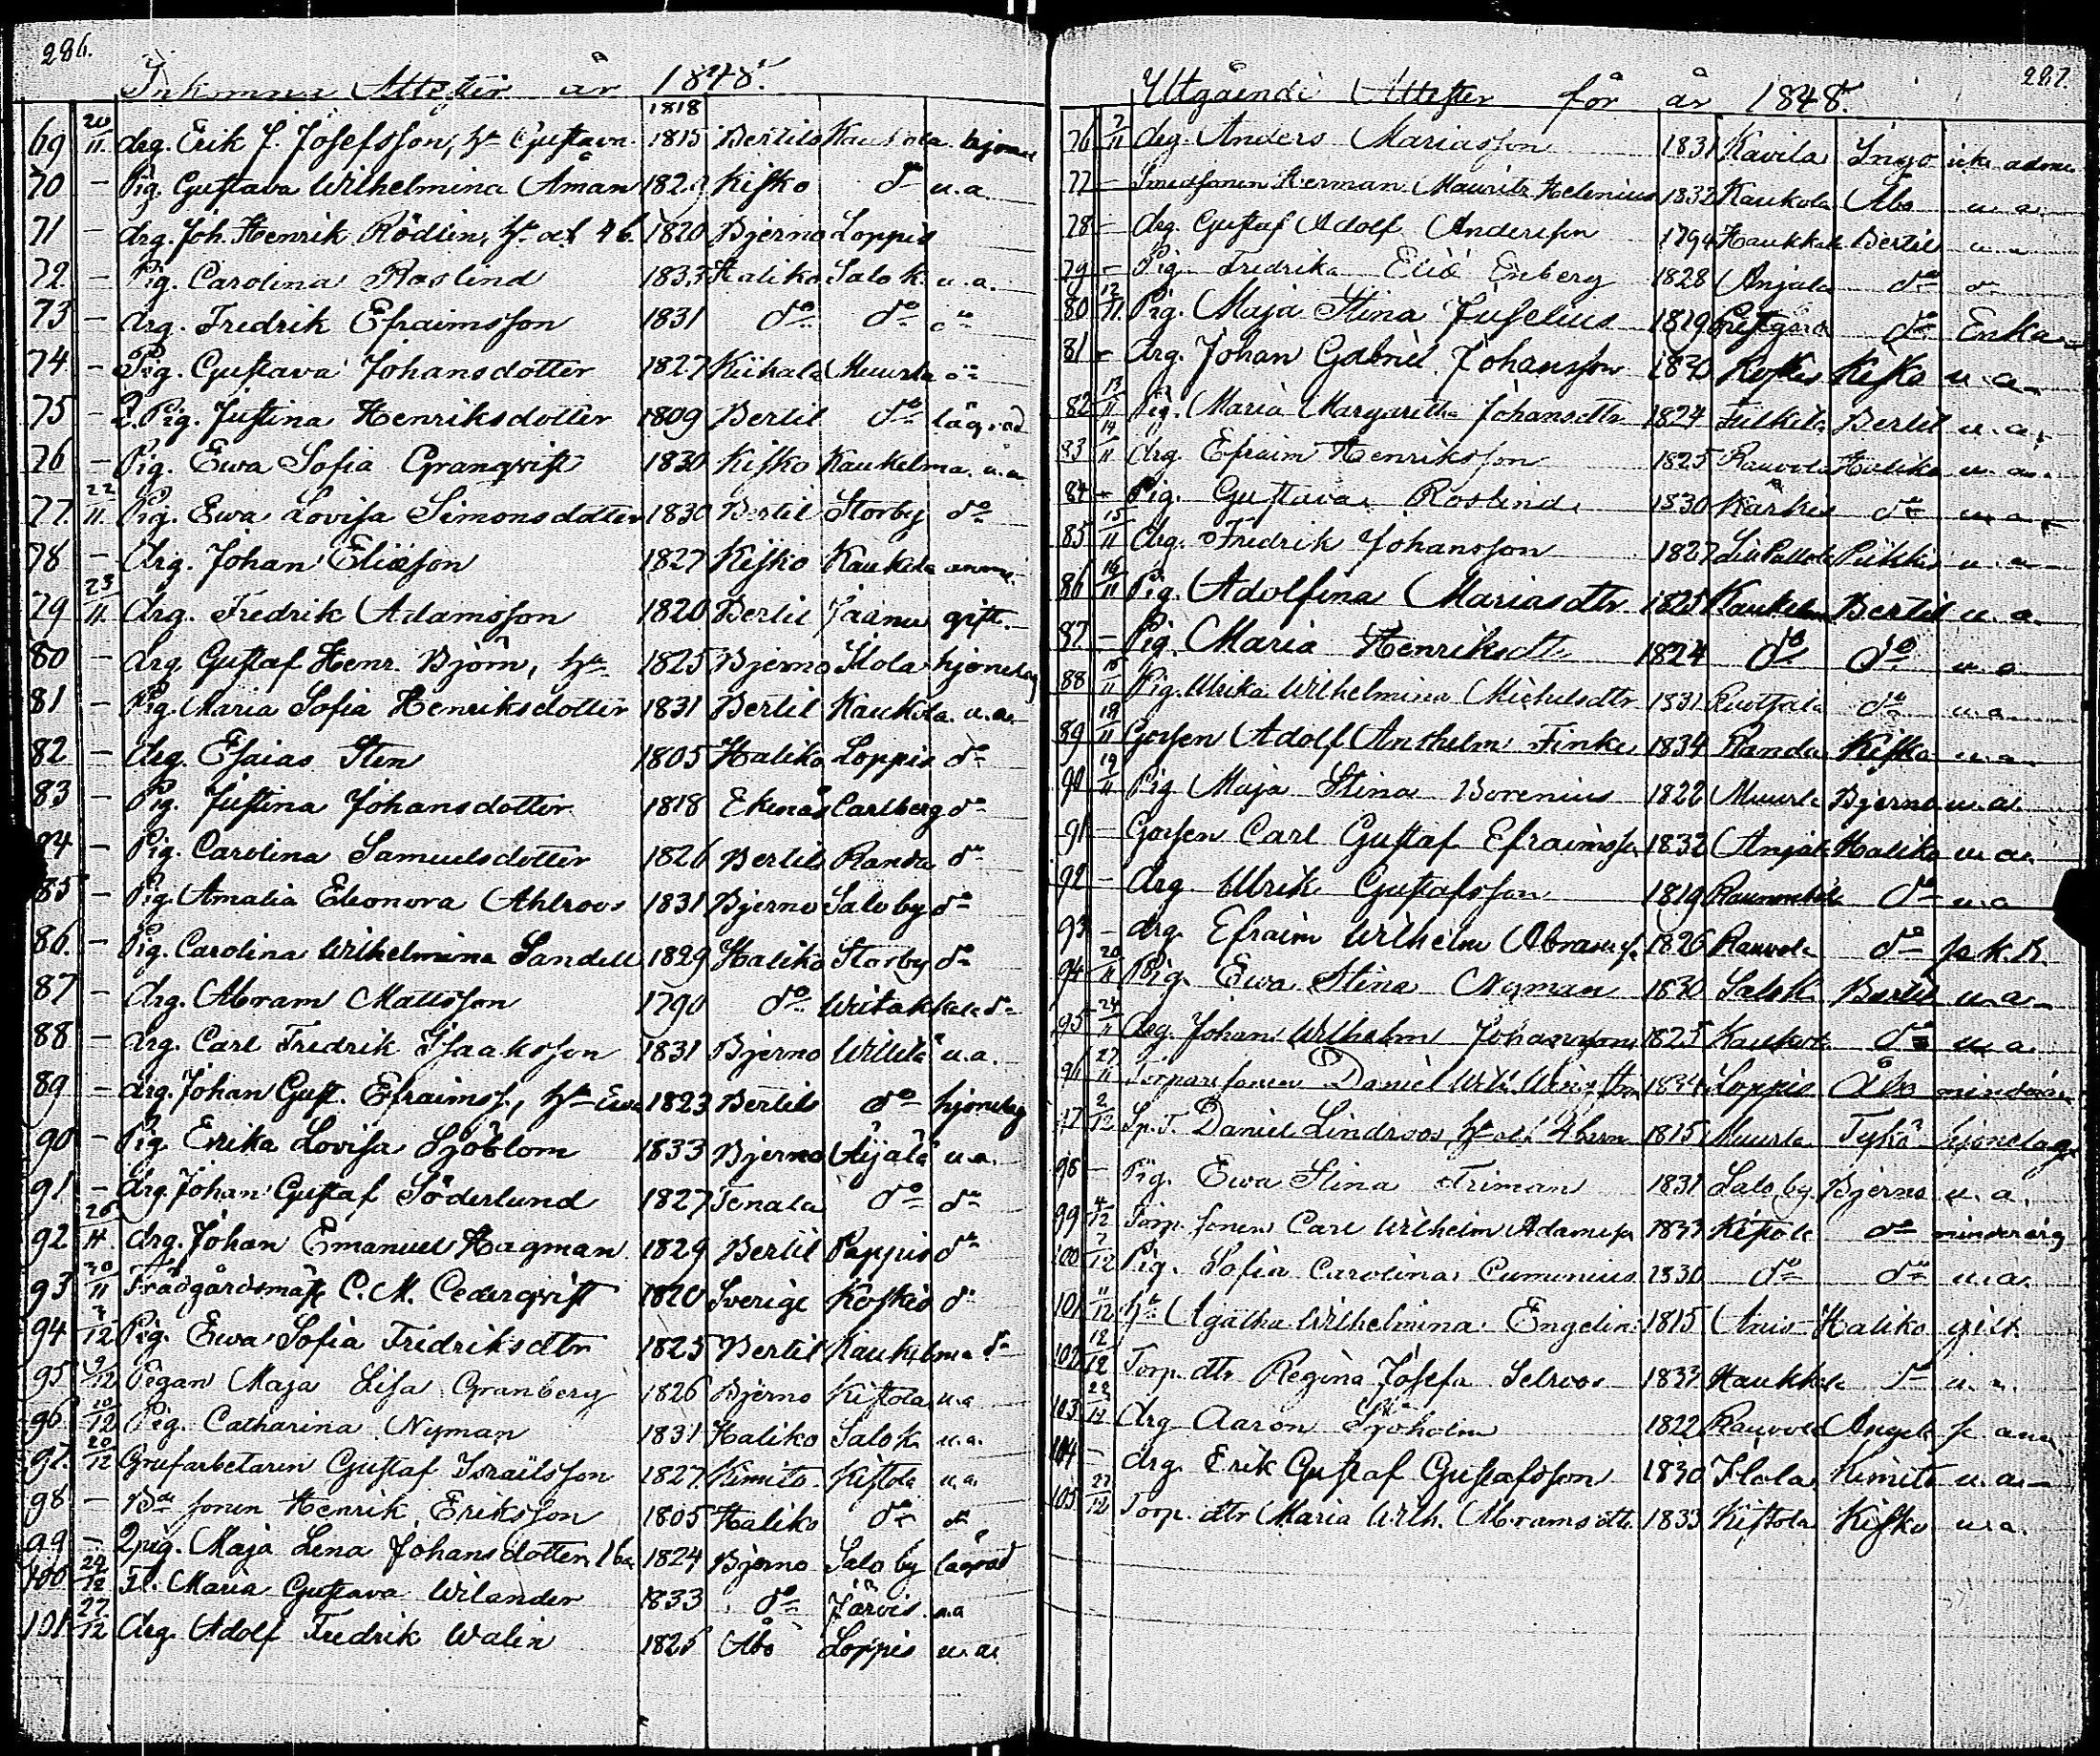 286.
Inkomna Attester år 1848.
1818
69 20/11 drg. Erik J. Josefsson, h. Gustava 1815 Bertils Kaukola hjone
70 — Pig. Gustava Wilhelmina Åman 1829 Kisko do u.a.
71 — drg. Joh. Henrik Rödlin, h. och 4 b. 1820 Bjerno Loppis
72 — Pig. Carolina Roslind 1833 Haliko Salo k. u.a.
73 — drg. Fredrik Efraimsson 1831 do do do
74 — Pig. Gustava Johansdotter 1827 Kiikala Muurla do
75 — Q. Pig. Justina Henriksdotter 1809 Bertil do lägrad
76 — Pig. Ewa Sofia Granqvist 1830 Kisko Kaukelma u.a.
77. 22/11 Pig. Ewa Lovisa Simonsdotter 1830 Bertil Storby do
78 — drg. Johan Eliasson 1827 Kisko Kaukola
79 23/11 drg. Fredrik Adamsson 1820 Bertil gift.
80 — drg Gustaf Henr. Björn, h. 1825 Bjerno Ilola hjonelag
81 — Pig. Maria Sofia Henriksdotter 1831 Bertil Kaukola u.a.
82 — drg. Esaias Sten 1805 Haliko Loppis do
83 — Pig. Justina Johansdotter 1818 Ekenäs Carlberg do
84 — Pig. Carolina Samuelsdotter 1826 Bertils Randa do
85 — Pig. Amalia Eleonora Ahlroos 1831 Bjerno Salo by do
86. — Pig. Carolina Wilhelmina Sandell 1829 Haliko Storby do
87 — drg. Abram Mattsson 1790 do Writakkala do
88 — drg. Carl Fredrik Isaaksson 1831 Bjerno u.a.
89 — drg. Johan Gust. Efraimss., h. Ewa 1823 Bertils do hjonelag
90 — Pig. Erika Lovisa Sjöblom 1833 Bjerno Äijälä u.a.
91 — drg. Johan Gustaf Söderlund 1827 Tenala do do
92 26/11. drg. Johan Emanuel Hagman 1829 Bertil Pappis do
93 30/11 Trädgårdsmäst. C. M. Cederqvist 1820 Sverige Koskis do
94 7/12 Pig. Ewa Sofia Fredriksdtr 1825 Bertil Kaukelma do
95 9/12 Pigan Maja Lisa Granberg 1826 Bjerno Kistola u.a
96 10/12 Pig. Catharina Nyman 1831 Haliko Salo k. u.a.
97. 20/12 Grufarbetaren Gustaf Israelsson 1827. Kimito. Kistola u.a
98 — sonen Henrik Eriksson 1805 Haliko do do
99 — Qpig. Maja Lena Johansdotter, 1 ba 1824 Bjerno Salo by lägrad
100 24/12 Fl. Maria Gustava Wilander 1833 do Järvis u.a
101 27/12 drg. Adolf Fredrik Walin 1825 Åbo Loppis u.a.
287.
Utgåendi Attester för år 1848.
76 7/11 drg. Anders Mariasson 1831 Kavila Ingo icke adm.
77 — Smedsonen Herman Mauritz Helenius 1832 Kaukola Åbo u.a.
78 — drg. Gustaf Adolf Andersson 1794 Haukkala Bertil u.a
79 — Pig. Fredrika Enberg 1828 Anjala do do
80 12/11. Pig. Maja Stina Juselius 1819 Prestgård do Enka
81 — drg. Johan Gabriel Johansson 1830 Koskis Kisko u.a.
82 13/11 Pig. Maria Margaretha Johansdtr 1824 Fulkila Bertil u.a.
83 14/11 drg. Efraim Henriksson 1825 Rauvola Haliko u.a.
84 — Pig. Gustava Roslind 1830 Kärkis do u.a.
85 15/11 drg. Fredrik Johansson 1827 Piikkis u.a.
86 16/11 Pig. Adolfina Mariasdtr 1825 Kaukelma Bertil u.a.
87. — Pig. Maria Henriksdtr 1824 do do u.a.
88 18/11 Pig. Ulrika Wilhelmina Michelsdtr 1831 Ruotsala do u.a.
89 18/11 Gossen Adolf Anthelm Finke 1834 Randa Kisko u.a.
90 19/11 Pig Maja Stina Borenius 1822 Muurla Bjerno u.a.
91 — Gossen Carl Gustaf Efraimsson 1832 Anjala Haliko u.a.
92 — drg. Ulrik Gustafsson 1819 do u.a
93 — drg. Efraim Wilhelm Abramss. 1826 Rauvola do
94 20/11 Pig. Ewa Stina Nyman 1830 Salo k Bertil u.a.
95 24/11 drg. Johan Wilhelm Johansson 1825 Kaukola do u.a.
96 27/11 Torparesonen Daniel Wilh. 1834 Loppis Åbo
97 2/12 Sp. T. Daniel Lindroos, h. och 4 barn 1815 Muurla Tykö hjonelag
98 — Pig. Ewa Stina Friman 1831 Salo by Bjerno u.a.
99 4/12 Torp. sonen Carl Wilhelm Adamsson 1833 Kistola do minderårig
100 7/12 Pig. Sofia Carolina Cumenius 1830 do do u.a.
101 11/12 h. Agatha Wilhelmina Engelin 1815 Anis Haliko gift.
102 12/12 Torp. dtr Regina Josefa Selroos 1833 Haukkala do u.a.
103 23/12 drg Aaron Sjöholm 1822 Rauvola
104 — drg. Erik Gustaf Gustafsson 1830 Ilola Kimito u.a.
105 27/12 Torp. dtr Maria Wilh. Abramsdtr. 1833 Kistola Kisko u.a.